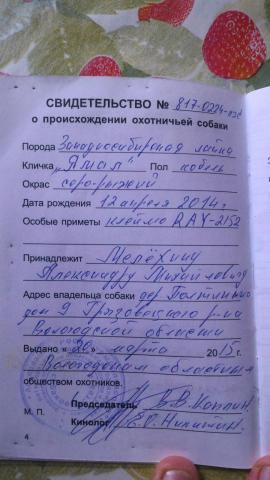 СВИДЕТЕЛЬСТВО № 817-0224-
о происхождении охотничьей собаки
Порода Западносибирская лайка
Кличка „Ямал“ Пол кобель
Окрас серо-рыжий
Дата рождения 12 апреля 2014г
Особые приметы клеймо RAY-2152
Принадлежит Мелёхину
Александру Михайловичу
Адрес владельца собаки дер
дом 9 Грязовецкого р-на
Вологодской области
Выдано «20» марта 2015г.
Вологодским областным
обществом охотников.
Председатель В.В.
М. П. Кинолог Никитин.
4